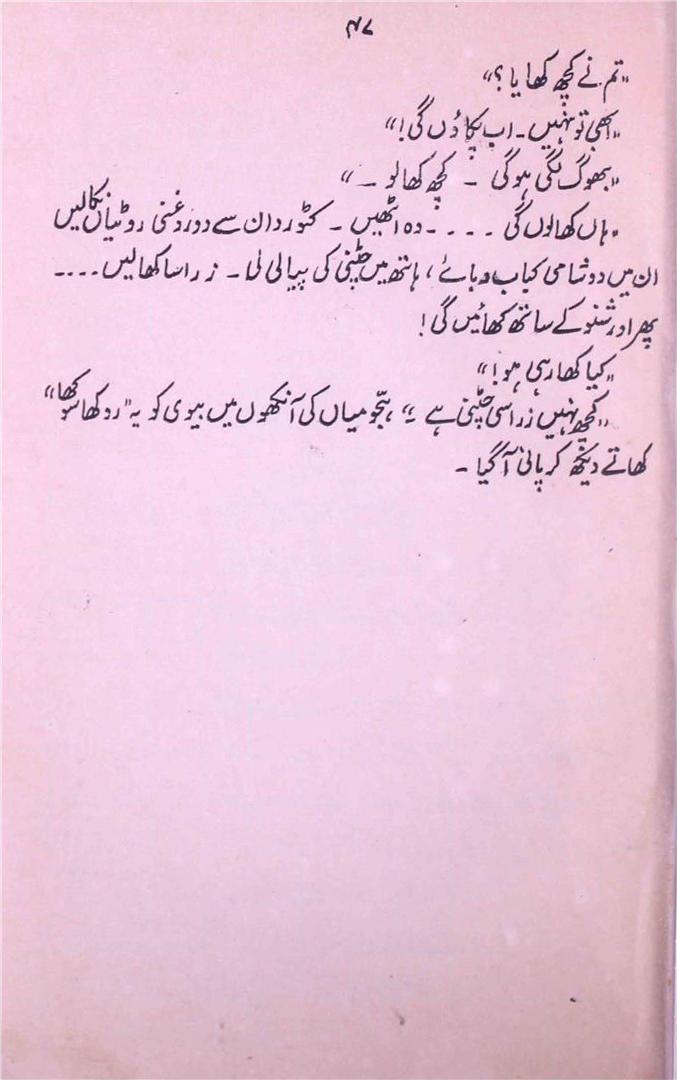 ۴۷
"تم نے کچھ کھایا؟"
"ابھی تو نہیں۔ اب پکاؤں گی!"
"بھوک لگی ہوگی ۔ کچھ کھالو ۔"
"ہاں کھالوں گی ۔۔۔۔ وہ اٹھیں ۔ کٹوردان سے دو روغنی روٹیاں نکالیں
ان میں دو شامی کباب دبائے، ہاتھ میں چٹنی کی پیالی لی ۔ زرا سا کھالیں ۔۔۔۔
پھر اور شنو کے ساتھ کھائیں گی!
"کیا کھا رہی ہو!"
"کچھ نہیں زراسی چٹنی ہے۔" بجّو میاں کی آنکھوں میں بیوی کو یہ "روکھا سوکھا"
کھاتے دیکھ کر پانی آگیا ۔